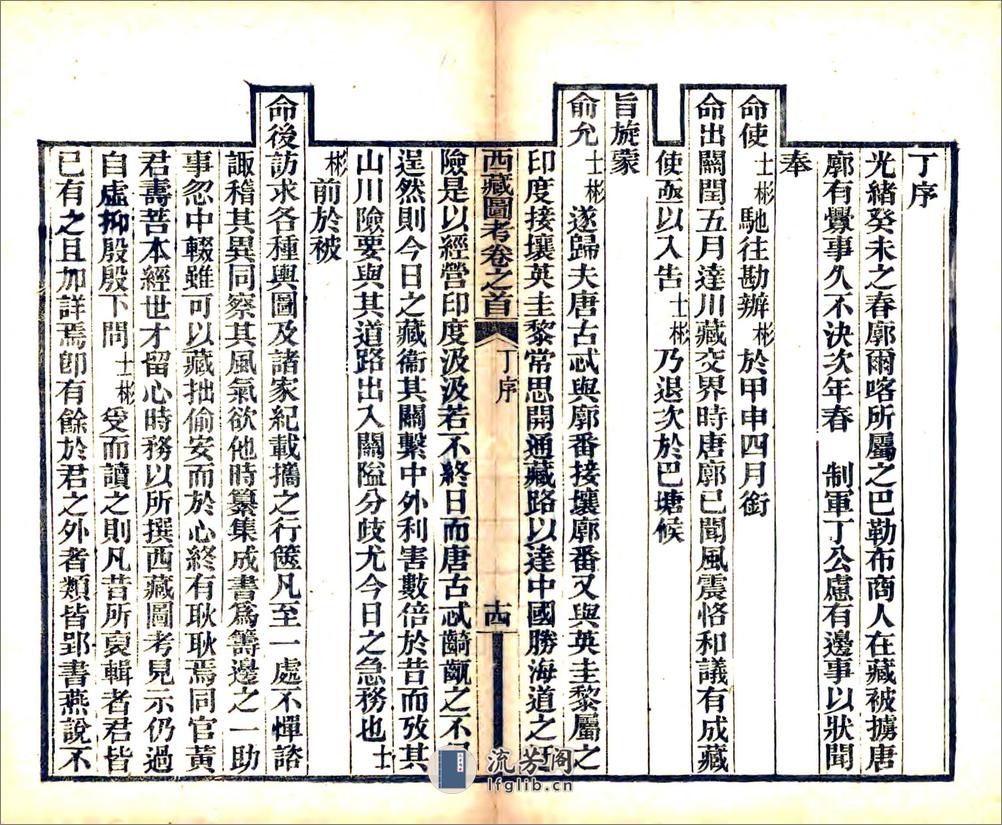 丁序
光緒癸未之春廓爾喀所屬之巴勒布商人在藏被擄唐
廓有釁事久不決次年春 制軍丁公慮有邊事以狀聞
奉
命使士彬馳往勘辦彬於甲申四月銜
命出關閏五月達川藏交界時唐廓已聞風震恪和議有成藏
使亟以入告士彬乃退次於巴塘候
旨旋蒙
俞允士彬遂歸夫唐古忒與廓番接壤廓番又與英圭黎屬之
印度接壤英圭黎常思開通藏路以達中國勝海道之
西藏圖考卷之首 丁序 十四
險是以經營印度汲汲若不終日而唐古忒齮齕之不
逞然則今日之藏衞其關繫中外利害數倍於昔而攷其
山川險要與其道路出入關隘分歧尤今日之急務也士
彬前於被
命後訪求各種輿圖及諸家紀載攜之行篋凡至一處不憚諮
諏稽其異同察其風氣欲他時纂集成書爲籌邊之一助
事忽中輟雖可以藏拙偷安而於心終有耿耿焉同官黃
君壽菩本經世才留心時務以所撰西藏圖考見示仍過
自虛抑殷殷下問士彬受而讀之則凡昔所裒輯者君皆
已有之且加詳焉卽有餘於君之外者類皆郢書燕說不
流芳阁
lfglib.cn